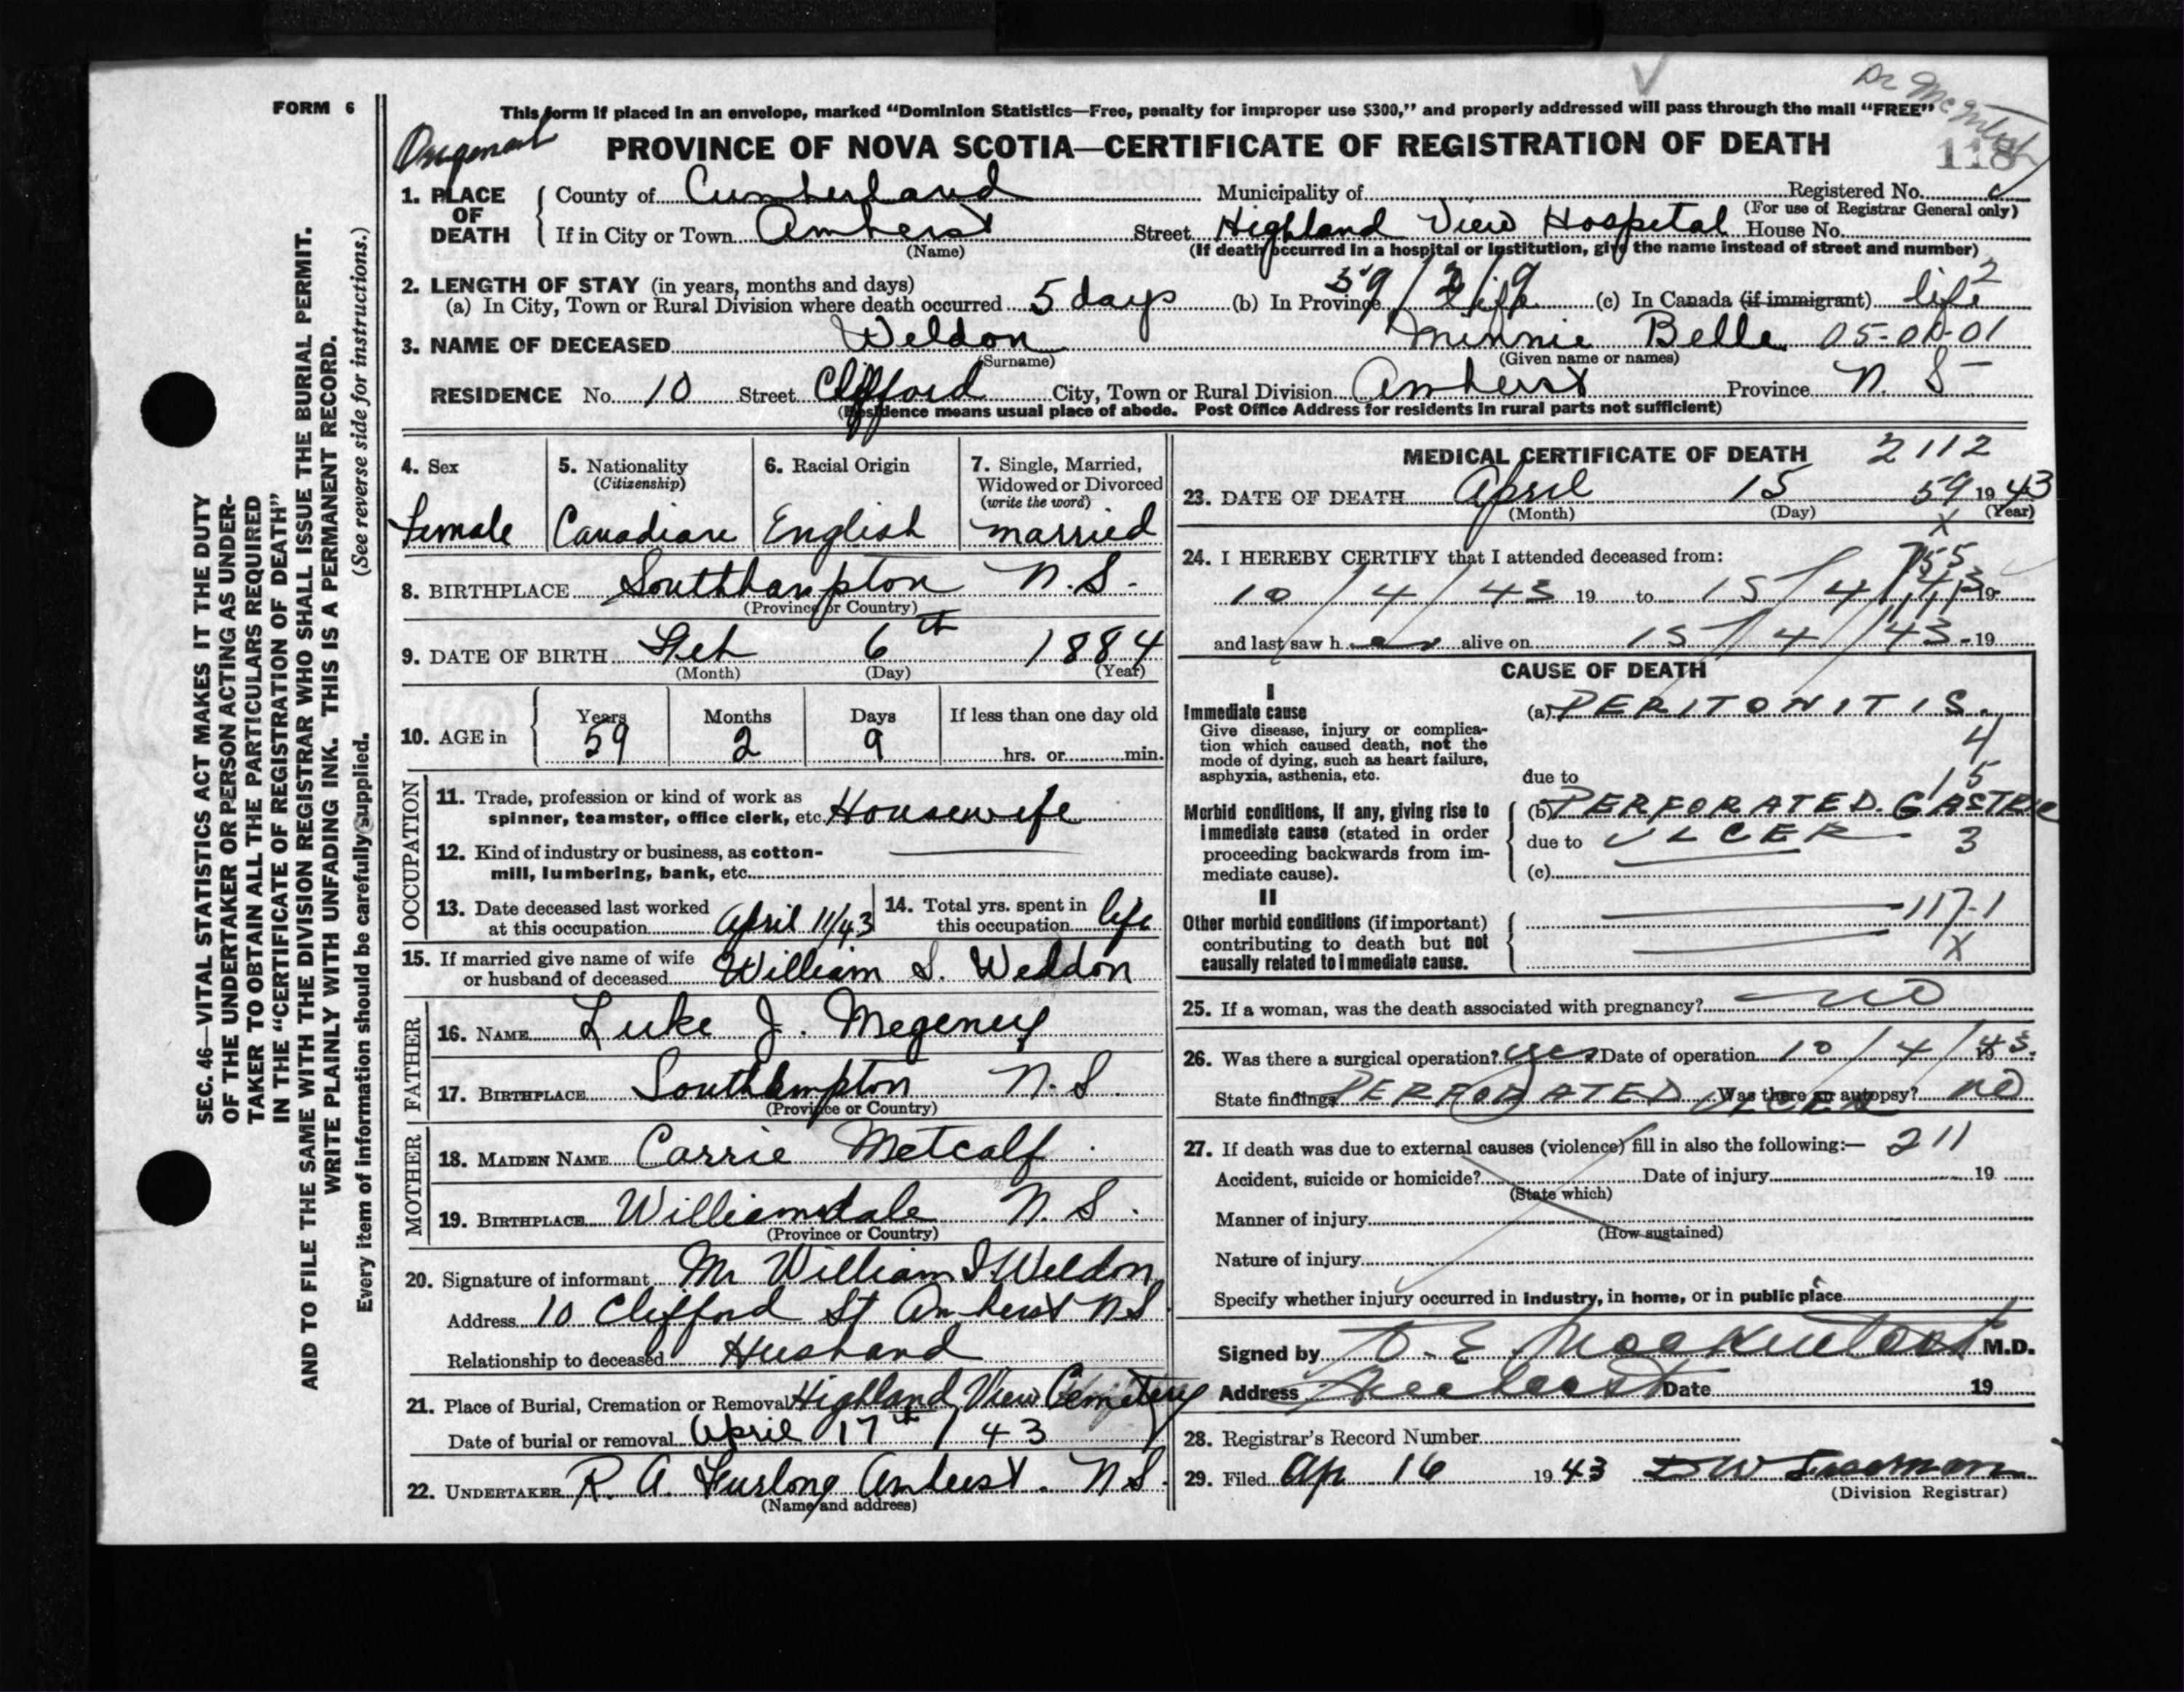 Dr McIntosh
FORM 6
This form if placed in an envelope, marked "Dominion Statistics—Free, penalty for improper use $300," and properly addressed will pass through the mail "FREE"
PROVINCE OF NOVA SCOTIA—CERTIFICATE OF REGISTRATION OF DEATH
118
1. PLACE OF DEATH County of Cumberland Municipality of Registered No.
(For use of Registrar General only)
If in City or Town Amherst Street Highland View Hospital House No.
(Name) (If death occurred in a hospital or institution, give the name instead of street and number)
2. LENGTH OF STAY (in years, months and days) 59/2/9
(a) In City, Town or Rural Division where death occurred 5 days (b) In Province life (c) In Canada (if immigrant) life 2
3. NAME OF DECEASED Weldon Minnie Belle
(Surname) (Given name or names)
RESIDENCE No. 10 Street Clifford City, Town or Rural Division Amherst Province N. S
(Residence means usual place of abode. Post Office Address for residents in rural parts not sufficient)
SEC. 46—VITAL STATISTICS ACT MAKES IT THE DUTY
OF THE UNDERTAKER OR PERSON ACTING AS UNDER-
TAKER TO OBTAIN ALL THE PARTICULARS REQUIRED
IN THE "CERTIFICATE OF REGISTRATION OF DEATH"
AND TO FILE THE SAME WITH THE DIVISION REGISTRAR WHO SHALL ISSUE THE BURIAL PERMIT.
WRITE PLAINLY WITH UNFADING INK. THIS IS A PERMANENT RECORD.
Every item of information should be carefully supplied. (See reverse side for instructions.)
4. Sex 5. Nationality 6. Racial Origin 7. Single, Married,
(Citizenship) Widowed or Divorced
(write the word)
Female Canadian English married
8. BIRTHPLACE Southhampton N.S.
(Province or Country)
9. DATE OF BIRTH Feb 6th 1884
(Month) (Day) (Year)
10. AGE in Years Months Days If less than one day old
59 2 9 hrs. or min.
OCCUPATION
11. Trade, profession or kind of work as
spinner, teamster, office clerk, etc. Housewife
12. Kind of industry or business, as cotton-
mill, lumbering, bank, etc.
13. Date deceased last worked
at this occupation April 11/43
14. Total yrs. spent in
this occupation life
15. If married give name of wife
or husband of deceased William S. Weldon
FATHER
16. NAME Luke J. Megeney
17. BIRTHPLACE Southampton N.S
(Province or Country)
MOTHER
18. MAIDEN NAME Carrie Metcalf
19. BIRTHPLACE Williamsdale N. S.
(Province or Country)
20. Signature of informant Mr William S Weldon
Address 10 Clifford St Amherst NS
Relationship to deceased Husband
21. Place of Burial, Cremation or Removal Highland View Cemetery
Date of burial or removal April 17th / 43
22. UNDERTAKER R. A. Furlong Amherst. NS.
(Name and address)
MEDICAL CERTIFICATE OF DEATH 2112
23. DATE OF DEATH April 15 59 1943
(Month) (Day) (Year)
X
24. I HEREBY CERTIFY that I attended deceased from:
10/4/43 19 to 15/4/43 19
and last saw her alive on 15/4/43- 19
CAUSE OF DEATH
I
Immediate cause (a) PERITONITIS.
Give disease, injury or complica-
tion which caused death, not the 4
mode of dying, such as heart failure,
asphyxia, asthenia, etc. due to 15
Morbid conditions, if any, giving rise to (b) PERFORATED. GASTRIC
immediate cause (stated in order due to ULCER 3
proceeding backwards from im-
mediate cause). (c)
II
Other morbid conditions (if important) 117-1
contributing to death but not X
causally related to immediate cause.
25. If a woman, was the death associated with pregnancy? no
26. Was there a surgical operation? yes Date of operation 10/4/43. 19
State findings PERFORATED ULCER Was there an autopsy? no
27. If death was due to external causes (violence) fill in also the following:— 211
Accident, suicide or homicide? Date of injury 19
(State which)
Manner of injury
(How sustained)
Nature of injury
Specify whether injury occurred in industry, in home, or in public place
Signed by D. E. Mackintosh M.D.
Address Amherst Date 19
28. Registrar's Record Number
29. Filed Ap 16 1943
(Division Registrar)